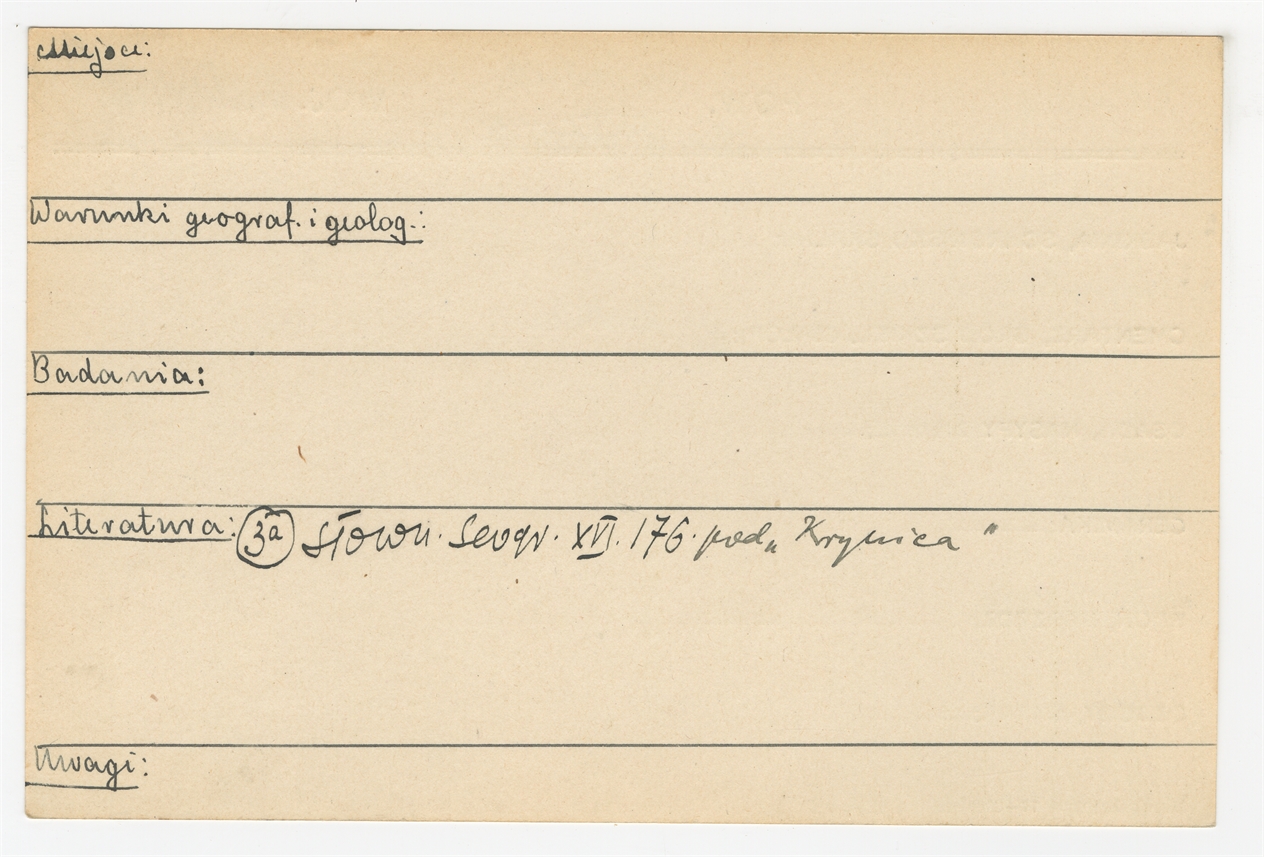 Miejsce:
Warunki geograf. i geolog.:
Badania:
Literatura: 3a Słown. Geogr. XVI. 176. pod „Krynica"
Uwagi: